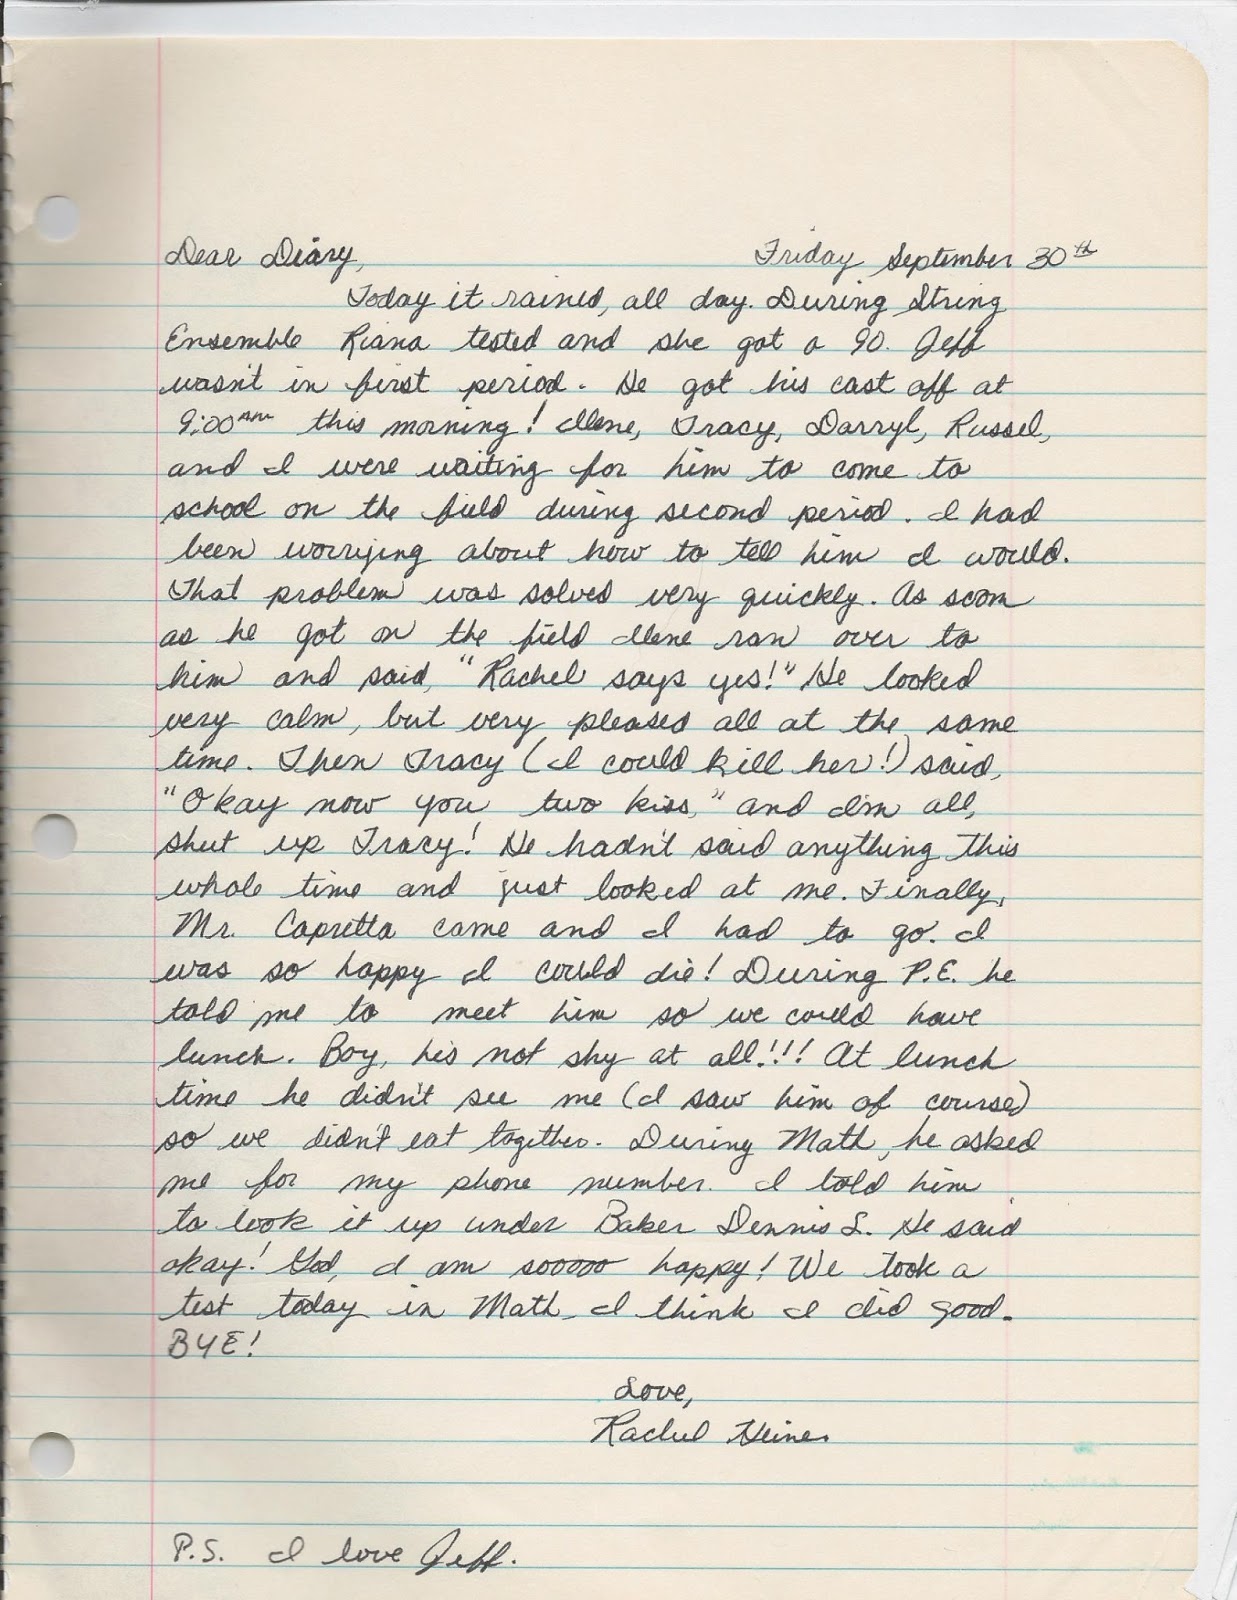 Dear Diary, Friday September 30th
Today it rained, all day. During String
Ensemble Riana tested and she got a 90. Jeff
wasn't in first period. He got his cast off at
9:00 AM this morning! Ilene, Tracy, Darryl, Russel,
and I were waiting for him to come to
school on the field during second period. I had
been worrying about how to tell him I would.
That problem was solved very quickly. As soon
as he got on the field Ilene ran over to
him and said, "Rachel says yes!" He looked
very calm, but very pleased all at the same
time. Then Tracy (I could kill her!) said,
"Okay now you two kiss," and I'm all,
shut up Tracy! He hadn't said anything this
whole time and just looked at me. Finally,
Mr. Capretta came and I had to go. I
was so happy I could die! During P.E. he
told me to meet him so we could have
lunch. Boy, his not shy at all!!! At lunch
time he didn't see me (I saw him of course)
so we didn't eat together. During Math, he asked
me for my phone number. I told him
to look it up under Baker Dennis L. He said
okay! God, I am sooooo happy! We took a
test today in Math. I think I did good.
BYE!
Love,
Rachel Heine.
P.S. I love Jeff.